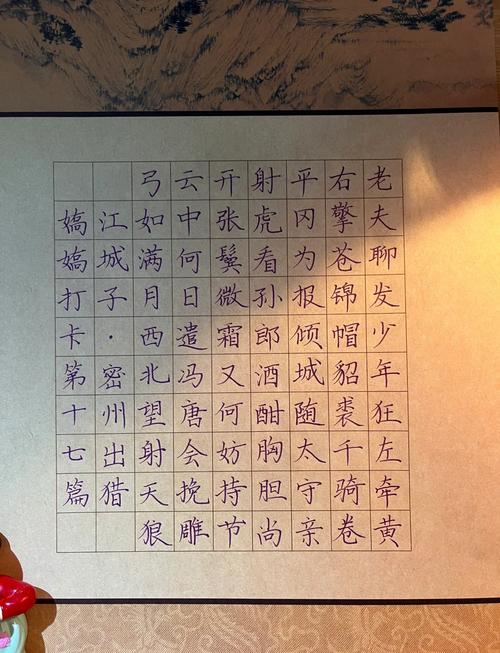 老夫聊发少年狂左牵黄
右擎苍锦帽貂裘千骑卷
平冈为报倾城随太守亲
射虎看孙郎酒酣胸胆尚
开张鬓微霜又何妨持节
云中何日遣冯唐会挽雕
弓如满月西北望射天狼
江城子·密州出猎
嬌嬌打卡第十七篇